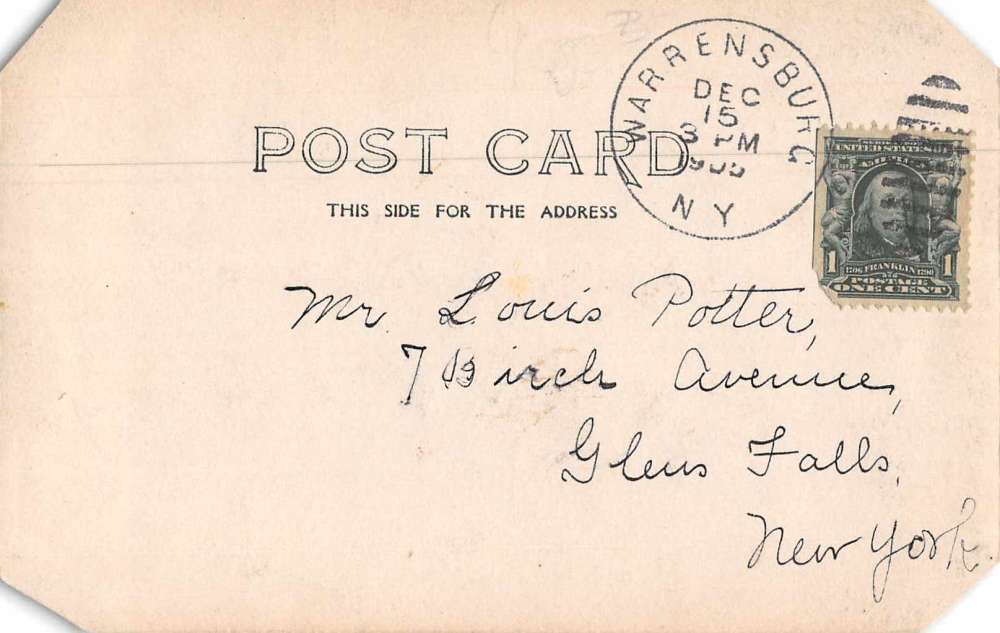 WARRENSBURG
DEC
15
3 PM
N Y
POST CARD
THIS SIDE FOR THE ADDRESS
UNITED STATES
1706 FRANKLIN 1790
1 1
POSTAGE
ONE CENT
Mr. Louis Potter,
7 Birch Avenue,
Glens Falls,
New York.